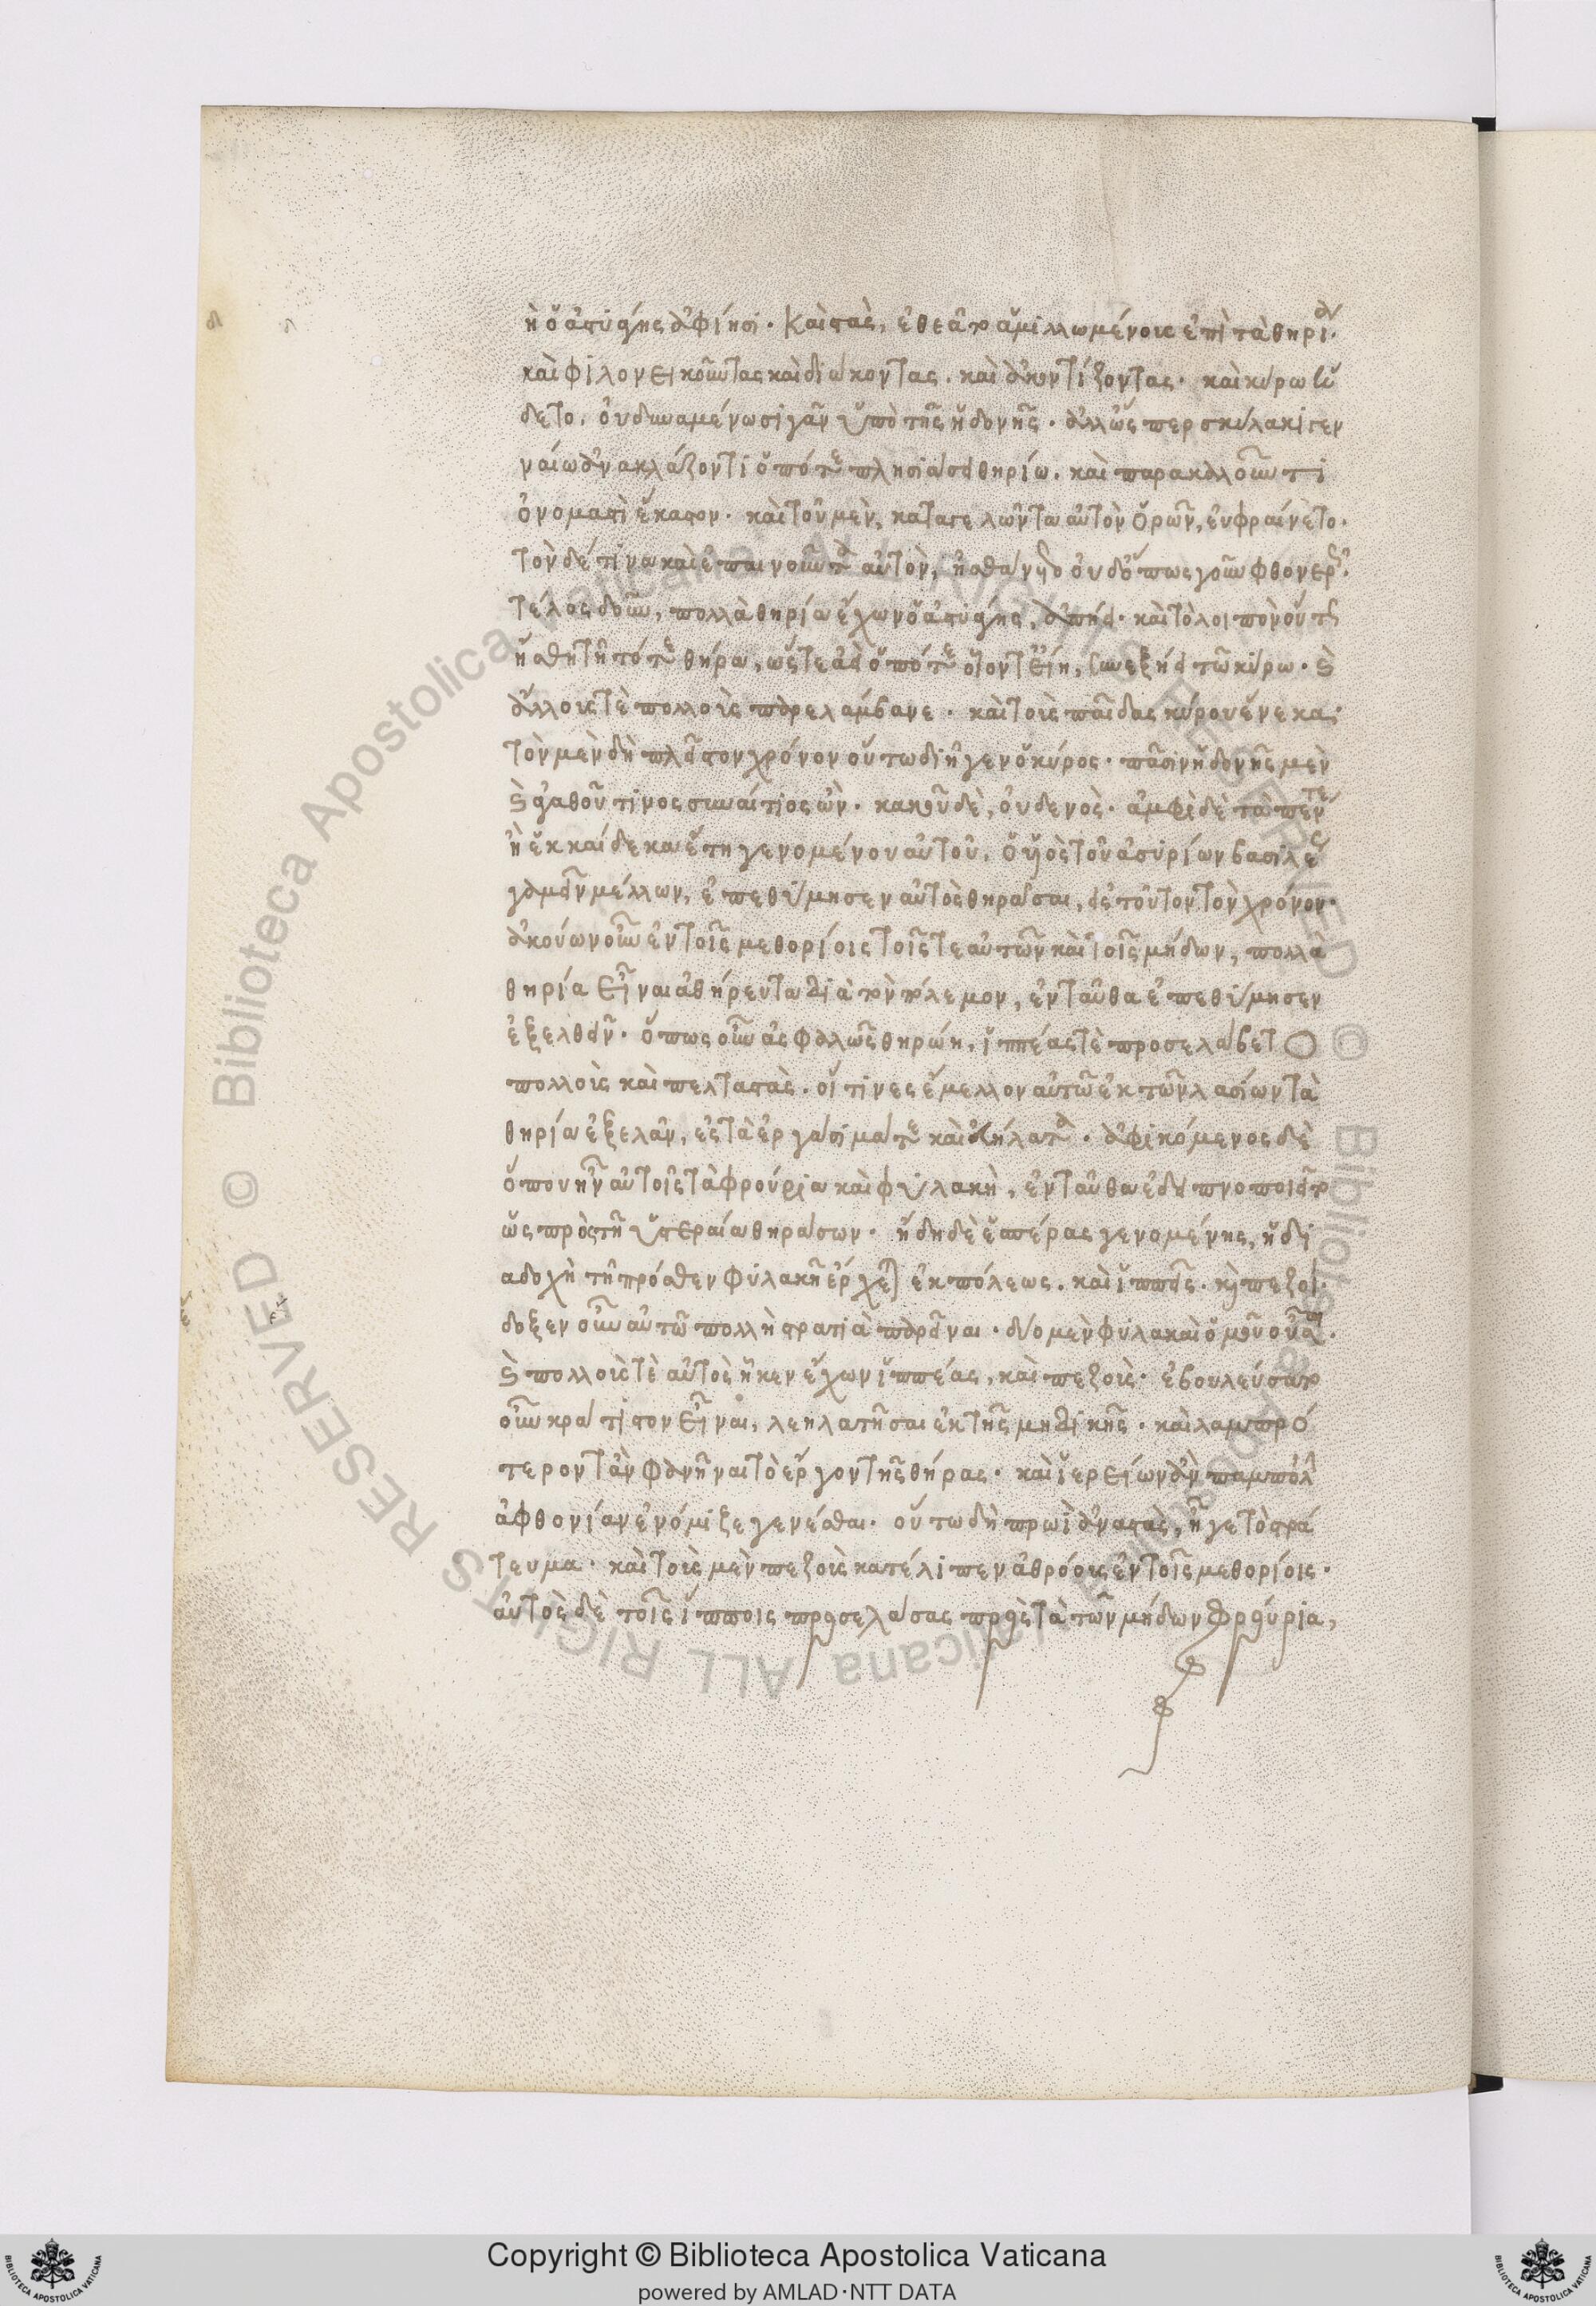 ἢ ὁ ἀστυάγης ἀφίησι. καὶ στὰς, ἐθεᾶτο ἁμιλλωμένους ἐπὶ τὰ θηρία.
καὶ φιλονεικοῦντας καὶ διώκοντας. καὶ ἀκοντίζοντας. καὶ κύρω ἥ
δετο. οὐ δυναμένω σιγᾶν ὑπὸ τῆς ἡδονῆς. ἀλλ' ὥσπερ σκύλακι γεν
ναίω ἀνακλάζοντι ὁπότε πλησιάσει θηρίω. καὶ παρακαλοῦντι
ὀνομαστὶ ἕκαστον. καὶ τοῦ μὲν, καταγελῶντα αὐτὸν ὁρῶν, εὐφραίνετο.
τὸν δέ τινα καὶ ἐπαινοῦντα αὐτὸν, ἠσθάνετο οὐδ' ὁπωστιοῦν φθονερῶς.
τέλος δ' οὖν, πολλὰ θηρία ἔχων ὁ ἀστυάγης, ἀπήει. καὶ τὸ λοιπὸν οὕτως
ἥσθη τῆ τότε θήρα, ὥστε ἀεὶ ὁπότε οἷόντ' εἴη, συνεξήει τῶ κύρω. καὶ
ἄλλους τὲ πολλοὺς παρελάμβανε. καὶ τοὺς παῖδας κύρου ἕνεκα.
τὸν μὲν δὴ πλεῖστον χρόνον οὕτω διῆγεν ὁ κύρος. πᾶσιν ἡδονῆς μὲν
καὶ ἀγαθοῦ τινος συναίτιος ὢν. κακοῦ δὲ, οὐδενός. ἀμφὶ δὲ τὰ πέντε
ἢ ἑκκαίδεκα ἔτη γενομένου αὐτοῦ, ὁ υἱὸς τοῦ ἀσυρίων βασιλέως
γαμεῖν μέλλων, ἐπεθύμησεν αὐτὸς θηράσαι, εἰς τοῦτον τὸν χρόνον.
ἀκούων οὖν ἐν τοῖς μεθορίοις τοῖς τε αὐτῶν καὶ τοῖς μήδων, πολλὰ
θηρία εἶναι ἀθήρευτα διὰ τὸν πόλεμον, ἐνταῦθα ἐπεθύμησεν
ἐξελθεῖν. ὅπως οὖν ἀσφαλῶς θηρώη, ἱππέας τὲ προσέλαβετο
πολλοὺς καὶ πελταστὰς. οἵτινες ἔμελλον αὐτῶ ἐκ τῶν λασίων τὰ
θηρία ἐξελᾶν, εἰς τὰ ἐργάσιμά τε καὶ εὐήλατα. ἀφικόμενος δὲ
ὅπου ἦν αὐτοῖς τὰ φρούρια καὶ φυλακὴ, ἐνταῦθα ἐδειπνοποιεῖτο
ὡς πρὸς τῆ ὑστεραία θηράσων. ἤδη δὲ ἑσπέρας γενομένης, ἡ δι
αδοχὴ τῆ πρόσθεν φυλακῆ ἔρχεται ἐκ πόλεως. καὶ ἱππεῖς. καὶ πεζοί.
δοξεν οὖν αὐτῶ πολλὴ στρατιὰ παρεῖναι. δύο μὲν φυλακαὶ ὁμοῦ οὖσαι.
καὶ πολλοὺς τὲ αὐτὸς ἧκεν ἔχων ἱππέας, καὶ πεζούς. ἐβουλεύσατο
οὖν κράτιστον εἶναι, λεηλατῆσαι ἐκ τῆς μηδικῆς. καὶ λαμπρό
τερον τ' ἂν φανῆναι τὸ ἔργον τῆς θήρας. καὶ ἱερείων ἂν παμπόλλην
ἀφθονίαν ἐνόμιζε γενέσθαι. οὕτω δὴ πρωῒ ἀναστὰς, ἦγε τὸ στρά
τευμα. καὶ τοὺς μὲν πεζοὺς κατέλιπεν ἀθρόους ἐν τοῖς μεθορίοις.
αὐτὸς δὲ τοῖς ἵπποις προσελάσας πρὸς τὰ τῶν μήδων φρούρια,
Copyright © Biblioteca Apostolica Vaticana
powered by AMLAD·NTT DATA